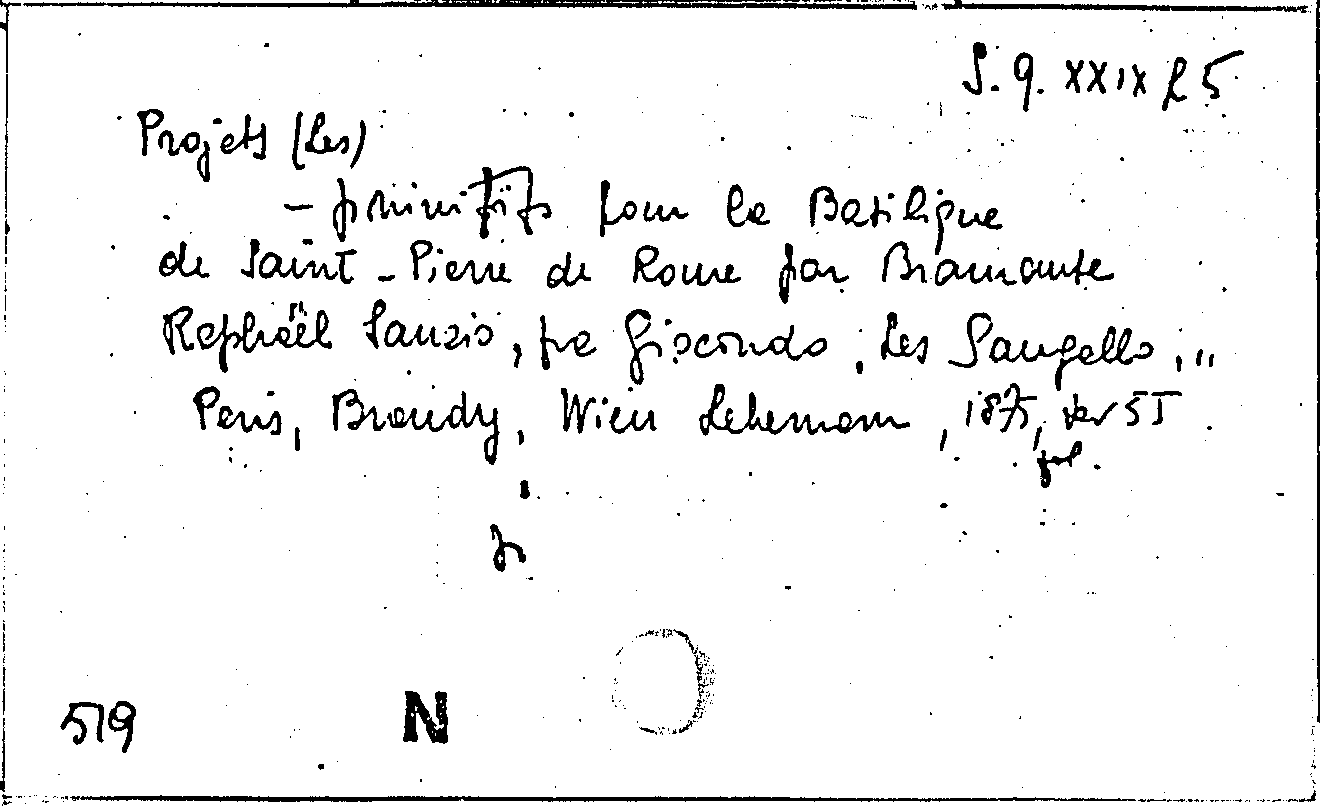 S. q. XXIX L 5
Projets (Les)
- primitifs pour la Basilique
de Saint-Pierre de Rome par Bramante
Raphaël Sanzio, fra Giocondo, Les Sangallo, ..
Paris, Baudry, Wien Lehemann, 1875, 55
fol.
519
N